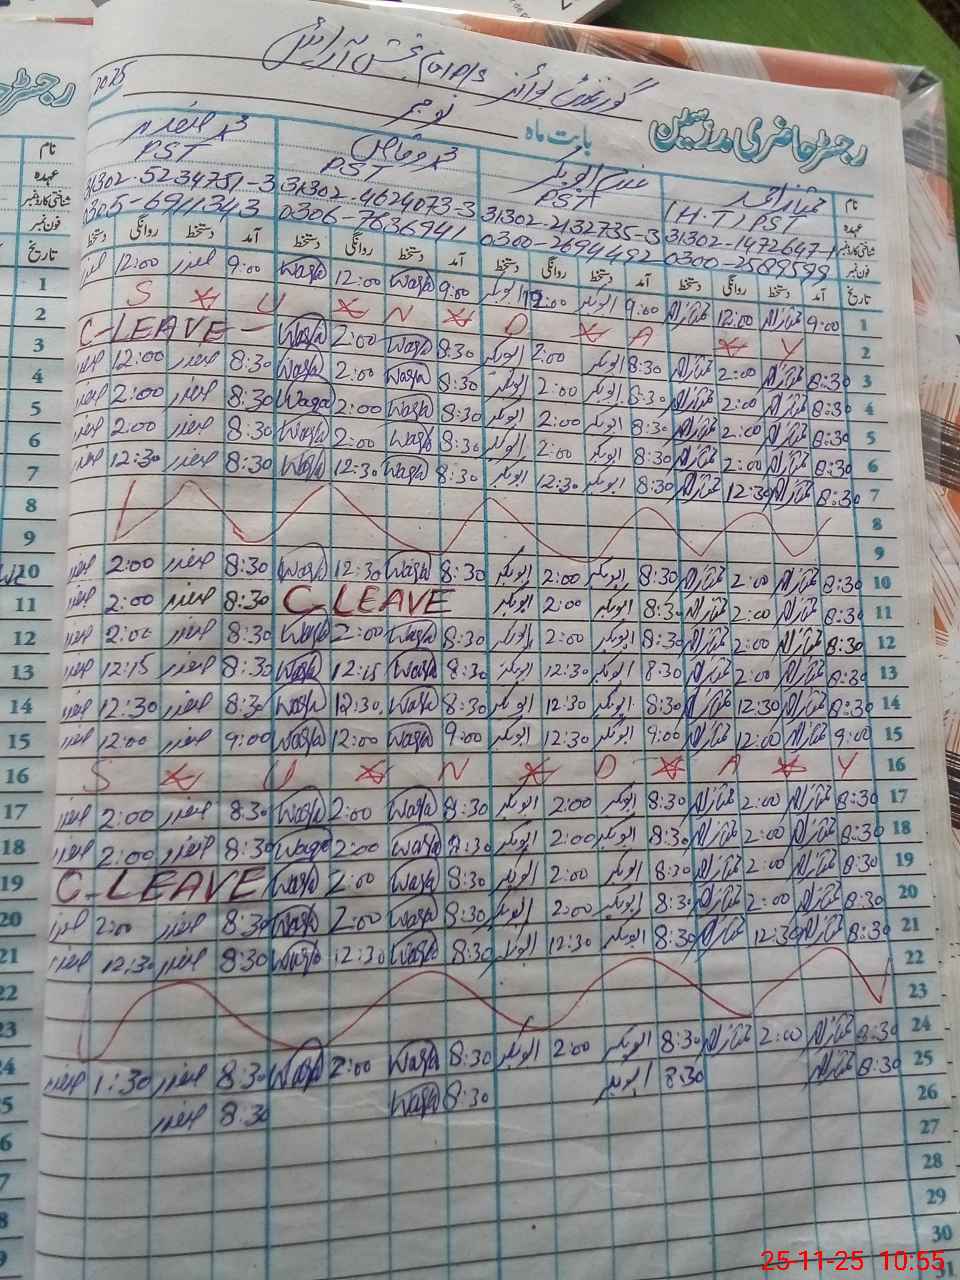 گورنمنٹ بوائز G/P/S
2025
رجسٹر حاضری مدرسین بابت ماہ نومبر
نام
عہدہ PST PST PST (H.T) PST
شناختی کارڈ نمبر 31302-5234751-3 31302-4624073-3 31302-2132735-3 31302-1472647-1
فون نمبر 0305-6911343 0306-7636941 0300-2694492 0300-2589599
تاریخ آمد دستخط روانگی دستخط آمد دستخط روانگی دستخط آمد دستخط روانگی دستخط آمد دستخط روانگی دستخط
1 12:00 صفدر 9:00 Waqas 12:00 Waqas 9:00 ابوبکر 12:00 ابوبکر 9:00 ممتاز احمد 12:00 ممتاز احمد 9:00 1
2 S U N D A Y 2
3 C-LEAVE - Waqas 2:00 Waqas 8:30 ابوبکر 2:00 ابوبکر 8:30 ممتاز احمد 2:00 ممتاز احمد 8:30 3
4 صفدر 12:00 صفدر 8:30 Waqas 2:00 Waqas 8:30 ابوبکر 2:00 ابوبکر 8:30 ممتاز احمد 2:00 ممتاز احمد 8:30 4
5 صفدر 2:00 صفدر 8:30 Waqas 2:00 Waqas 8:30 ابوبکر 2:00 ابوبکر 8:30 ممتاز احمد 2:00 ممتاز احمد 8:30 5
6 صفدر 2:00 صفدر 8:30 Waqas 2:00 Waqas 8:30 ابوبکر 2:00 ابوبکر 8:30 ممتاز احمد 2:00 ممتاز احمد 8:30 6
7 صفدر 12:30 صفدر 8:30 Waqas 12:30 Waqas 8:30 ابوبکر 12:30 ابوبکر 8:30 ممتاز احمد 12:30 ممتاز احمد 8:30 7
8 8
9 9
10 صفدر 2:00 صفدر 8:30 Waqas 12:30 Waqas 8:30 ابوبکر 2:00 ابوبکر 8:30 ممتاز احمد 2:00 ممتاز احمد 8:30 10
11 صفدر 2:00 صفدر 8:30 C LEAVE ابوبکر 2:00 ابوبکر 8:30 ممتاز احمد 2:00 ممتاز احمد 8:30 11
12 صفدر 2:00 صفدر 8:30 Waqas 2:00 Waqas 8:30 ابوبکر 2:00 ابوبکر 8:30 ممتاز احمد 2:00 ممتاز احمد 8:30 12
13 صفدر 12:15 صفدر 8:30 Waqas 12:15 Waqas 8:30 ابوبکر 12:30 ابوبکر 8:30 ممتاز احمد 2:00 ممتاز احمد 8:30 13
14 صفدر 12:30 صفدر 8:30 Waqas 12:30 Waqas 8:30 ابوبکر 12:30 ابوبکر 8:30 ممتاز احمد 12:30 ممتاز احمد 8:30 14
15 صفدر 12:00 صفدر 9:00 Waqas 12:00 Waqas 9:00 ابوبکر 12:30 ابوبکر 9:00 ممتاز احمد 12:00 ممتاز احمد 9:00 15
16 S U N D A Y 16
17 صفدر 2:00 صفدر 8:30 Waqas 2:00 Waqas 8:30 ابوبکر 2:00 ابوبکر 8:30 ممتاز احمد 2:00 ممتاز احمد 8:30 17
18 صفدر 2:00 صفدر 8:30 Waqas 2:00 Waqas 8:30 ابوبکر 2:00 ابوبکر 8:30 ممتاز احمد 2:00 ممتاز احمد 8:30 18
19 C-LEAVE Waqas 2:00 Waqas 8:30 ابوبکر 2:00 ابوبکر 8:30 ممتاز احمد 2:00 ممتاز احمد 8:30 19
20 صفدر 2:00 صفدر 8:30 Waqas 2:00 Waqas 8:30 ابوبکر 2:00 ابوبکر 8:30 ممتاز احمد 2:00 ممتاز احمد 8:30 20
21 صفدر 12:30 صفدر 8:30 Waqas 12:30 Waqas 8:30 ابوبکر 12:30 ابوبکر 8:30 ممتاز احمد 12:30 ممتاز احمد 8:30 21
22 22
23 23
24 صفدر 1:30 صفدر 8:30 Waqas 2:00 Waqas 8:30 ابوبکر 2:00 ابوبکر 8:30 ممتاز احمد 2:00 ممتاز احمد 8:30 24
صفدر 8:30 Waqas 8:30 ابوبکر 8:30 ممتاز احمد 8:30 25
26
27
28
29
30
31
25-11-25 10:55